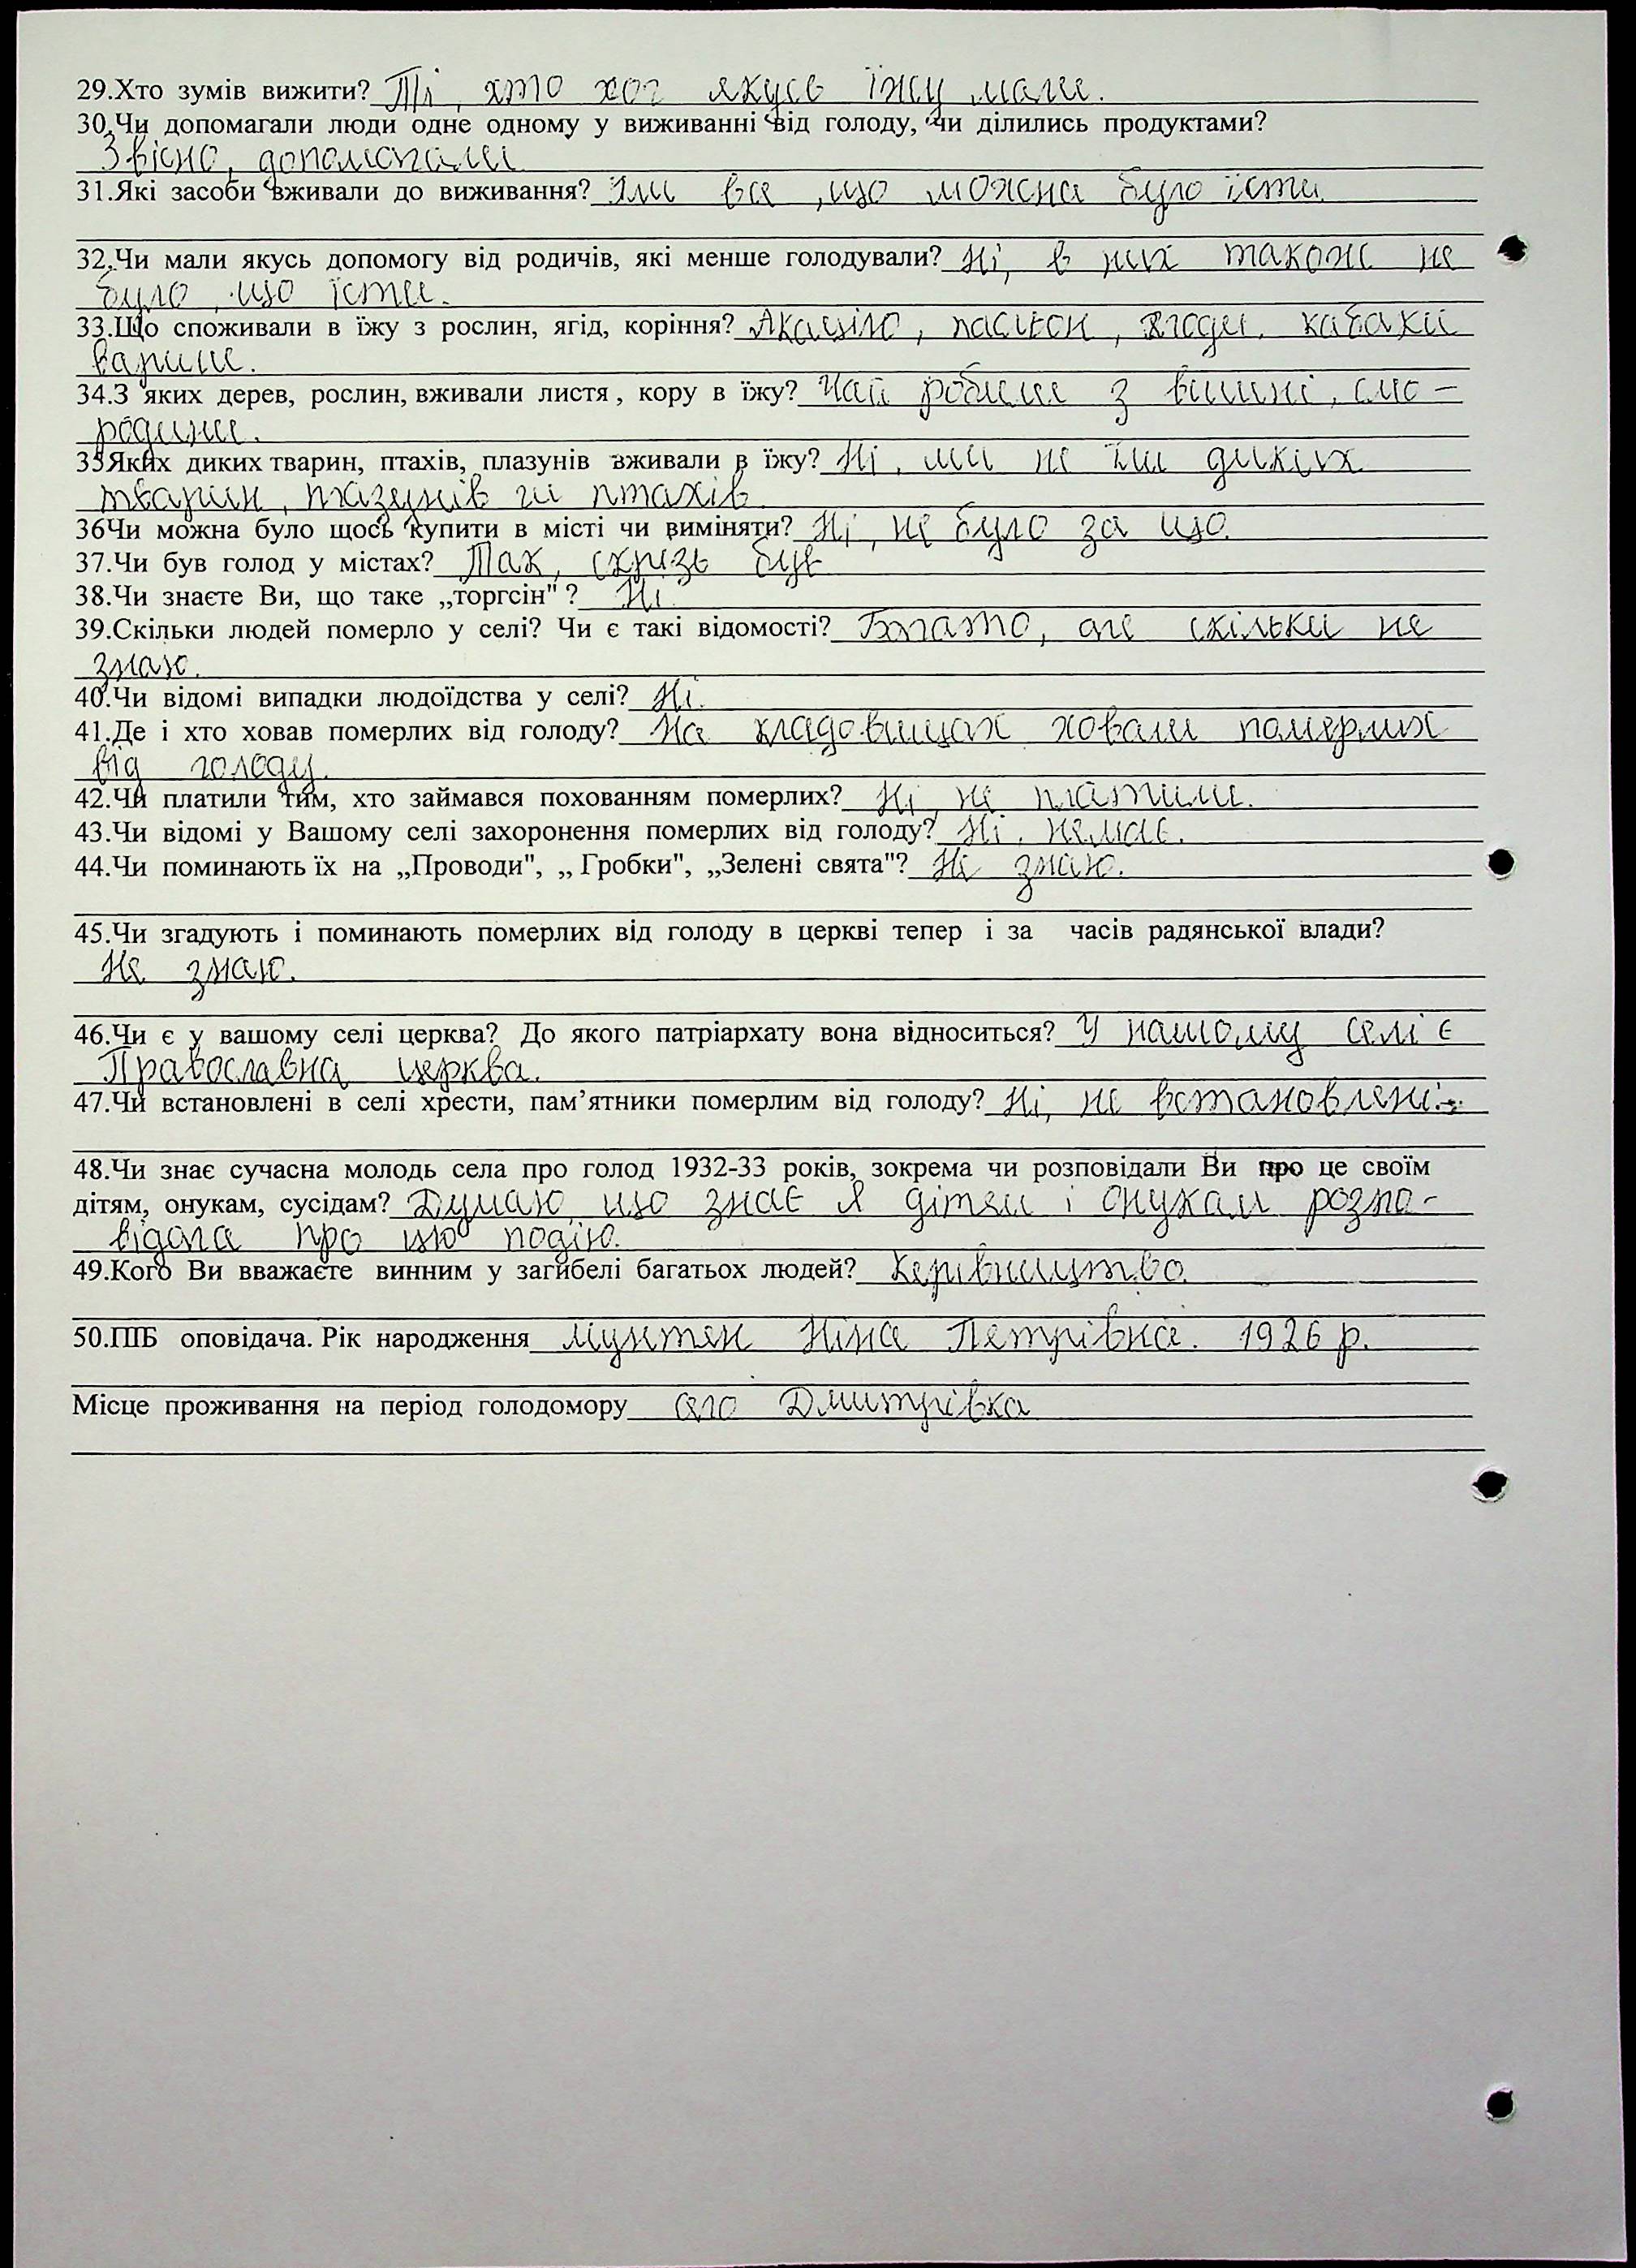 29.Хто зумів вижити? Ті, хто хоч якусь їжу мали.
30.Чи допомагали люди одне одному у виживанні від голоду, чи ділились продуктами?
Звісно, допомагали
31.Які засоби вживали до виживання? Їли все, що можна було їсти.
32.Чи мали якусь допомогу від родичів, які менше голодували? Ні, в них також не
було, що їсти.
33.Що споживали в їжу з рослин, ягід, коріння? Акацію, пасльон, ягоди, кабаки
варили.
34.З яких дерев, рослин, вживали листя, кору в їжу? Чай робили з вишні, смо-
родини.
35Яких диких тварин, птахів, плазунів вживали в їжу? Ні, ми не їли диких
тварин, плазунів чи птахів
36Чи можна було щось купити в місті чи виміняти? Ні, не було за що.
37.Чи був голод у містах? Так, скрізь був
38.Чи знаєте Ви, що таке „торгсін"? Ні.
39.Скільки людей померло у селі? Чи є такі відомості? Багато, але скільки не
знаю.
40.Чи відомі випадки людоїдства у селі? Ні.
41.Де і хто ховав померлих від голоду? На кладовищах ховали померлих
від голоду.
42.Чи платили тим, хто займався похованням померлих? Ні, не платили.
43.Чи відомі у Вашому селі захоронення померлих від голоду? Ні, немає.
44.Чи поминають їх на „Проводи", „Гробки", „Зелені свята"? Не знаю.
45.Чи згадують і поминають померлих від голоду в церкві тепер і за часів радянської влади?
Не знаю.
46.Чи є у вашому селі церква? До якого патріархату вона відноситься? У нашому селі є
Православна церква.
47.Чи встановлені в селі хрести, пам'ятники померлим від голоду? Ні, не встановлені.
48.Чи знає сучасна молодь села про голод 1932-33 років, зокрема чи розповідали Ви про це своїм
дітям, онукам, сусідам? Думаю, що знає Я дітям і онукам розпо-
відала про цю подію.
49.Кого Ви вважаєте винним у загибелі багатьох людей? Керівництво.
50.ПІБ оповідача. Рік народження Мунтян Ніна Петрівна. 1926 р.
Місце проживання на період голодомору село Дмитрівка